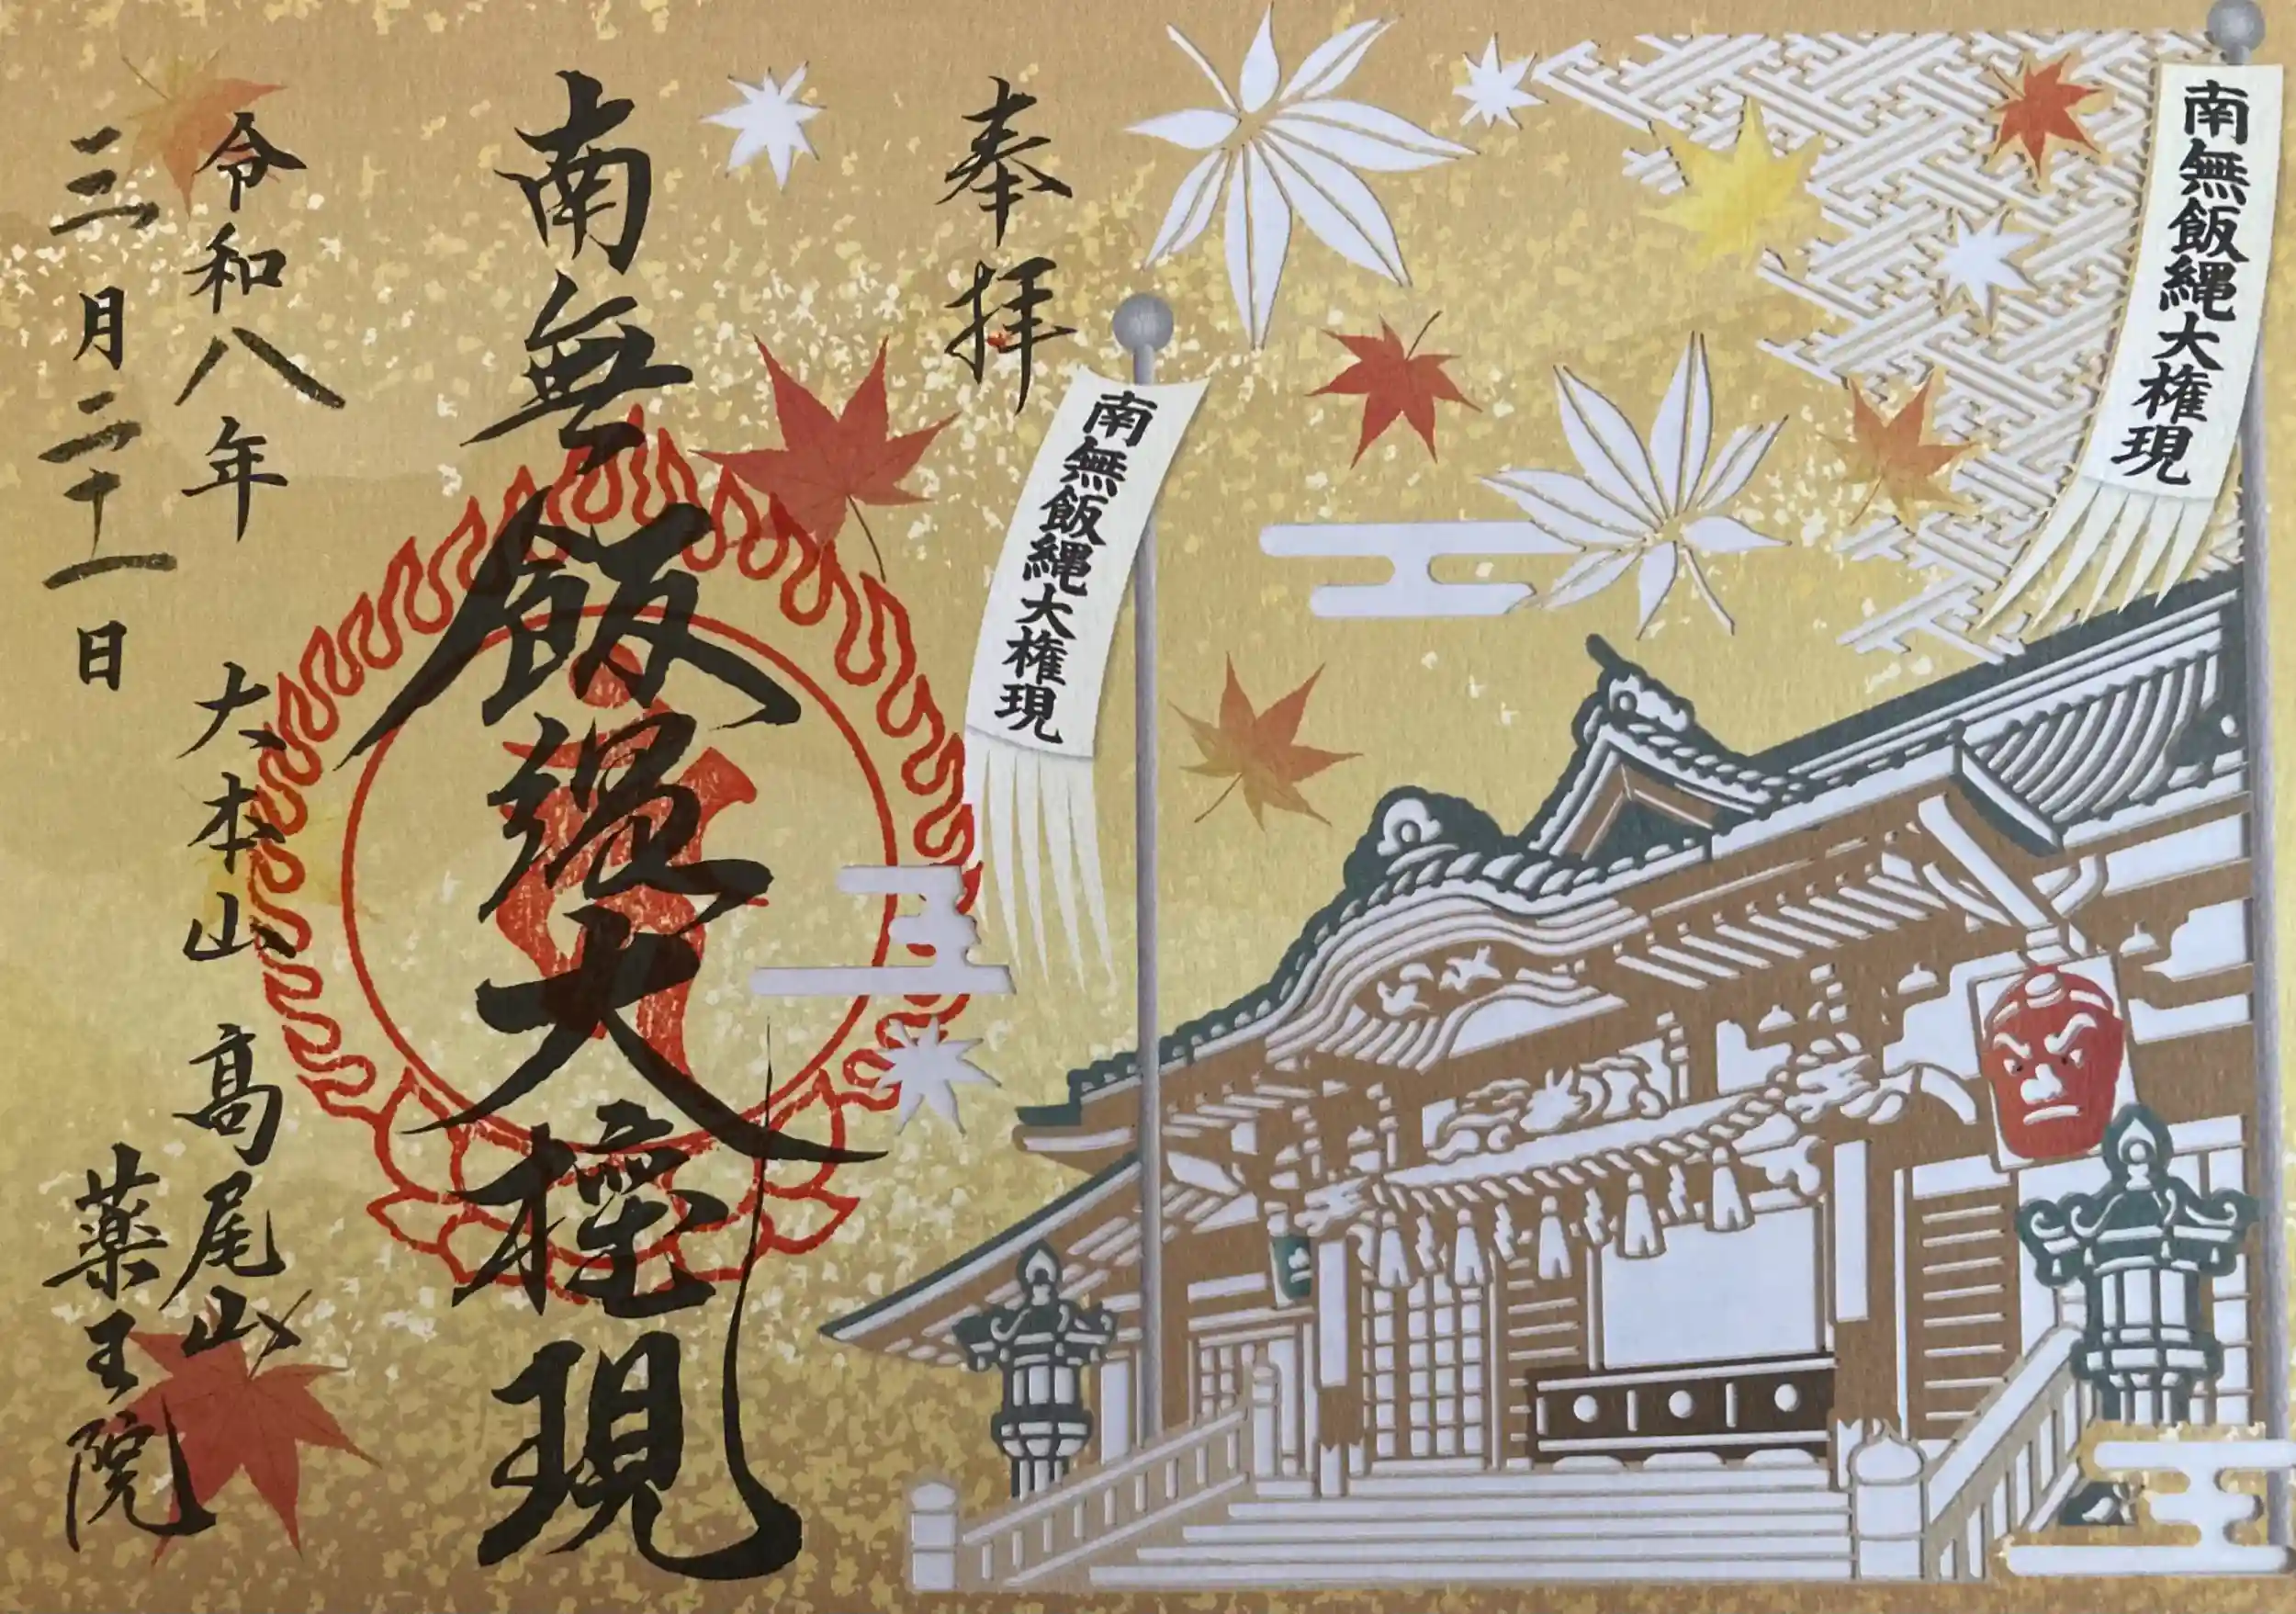 南無飯縄大権現
南無飯縄大権現
奉拝
南無飯縄大権現
令和八年
三月二十一日
大本山 髙尾山
薬王院